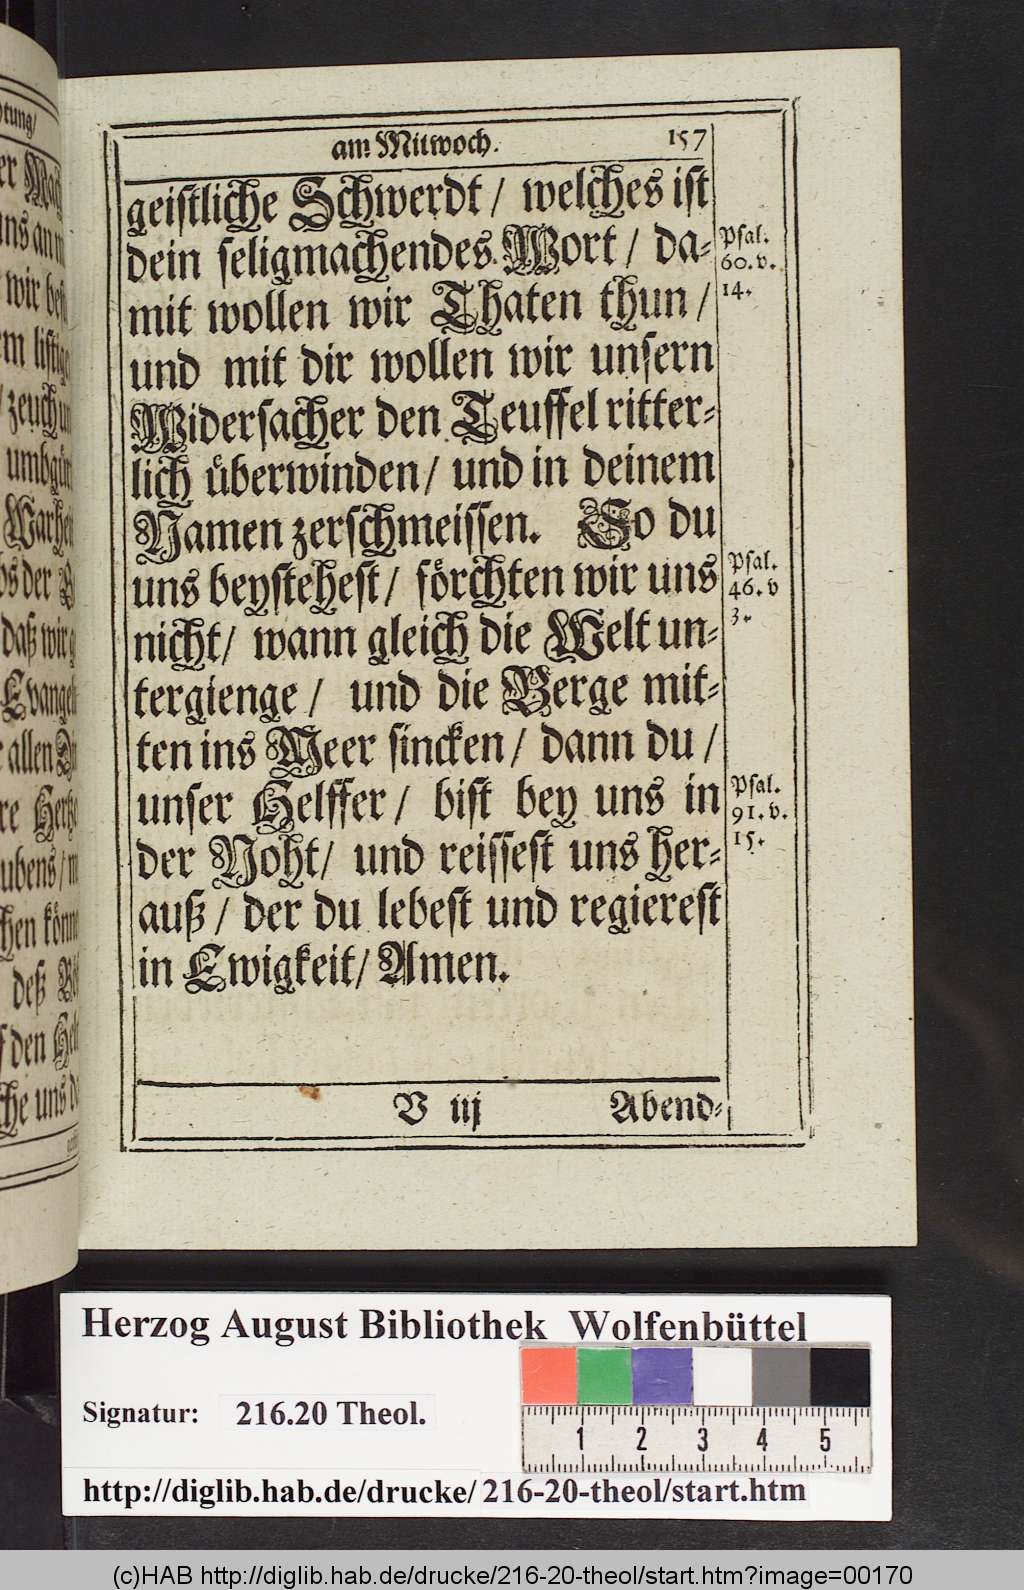 am Mitwoch. 157
geistliche Schwerdt / welches ist
dein seligmachendes Wort / da-
mit wollen wir Thaten thun /
und mit dir wollen wir unsern
Widersacher den Teuffel ritter-
lich überwinden / und in deinem
Namen zerschmeissen. So du
uns beystehest / förchten wir uns
nicht / wann gleich die Welt un-
tergienge / und die Berge mit-
ten ins Meer sincken / dann du /
unser Helffer / bist bey uns in
der Noht / und reissest uns her-
auß / der du lebest und regierest
in Ewigkeit / Amen.
Psal.
60. v.
14.
Psal.
46. v
3.
Psal.
91. v.
15.
V iij Abend-
wir
daß wir
allen
den
deß
uns
Herzog August Bibliothek Wolfenbüttel
Signatur: 216.20 Theol.
1 2 3 4 5
http://diglib.hab.de/drucke/216-20-theol/start.htm
(c)HAB http://diglib.hab.de/drucke/216-20-theol/start.htm?image=00170